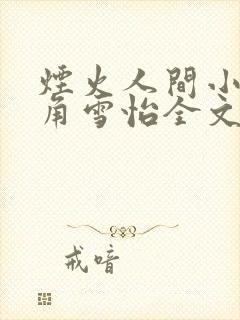 煙火人間小
角雪怡全文
戒喑